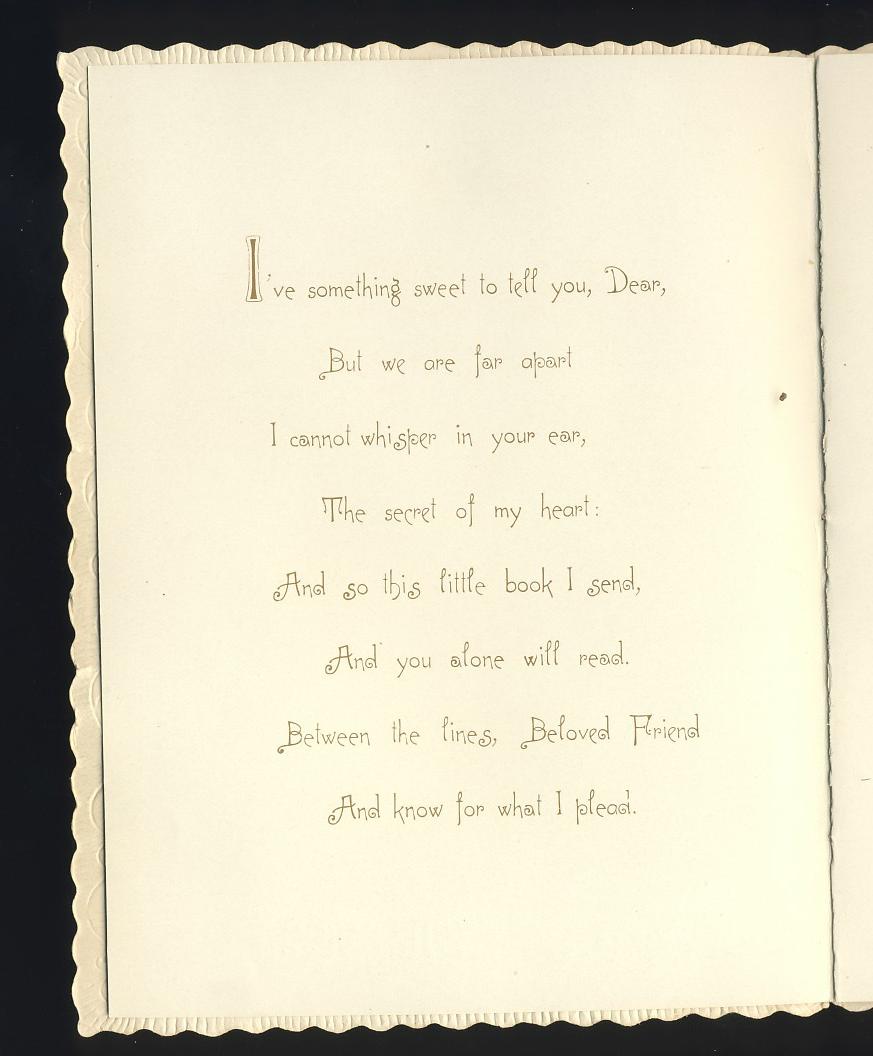 I've something sweet to tell you, Dear,
But we are far apart
I cannot whisper in your ear,
The secret of my heart:
And so this little book I send,
And you alone will read.
Between the lines, Beloved Friend
And know for what I plead.